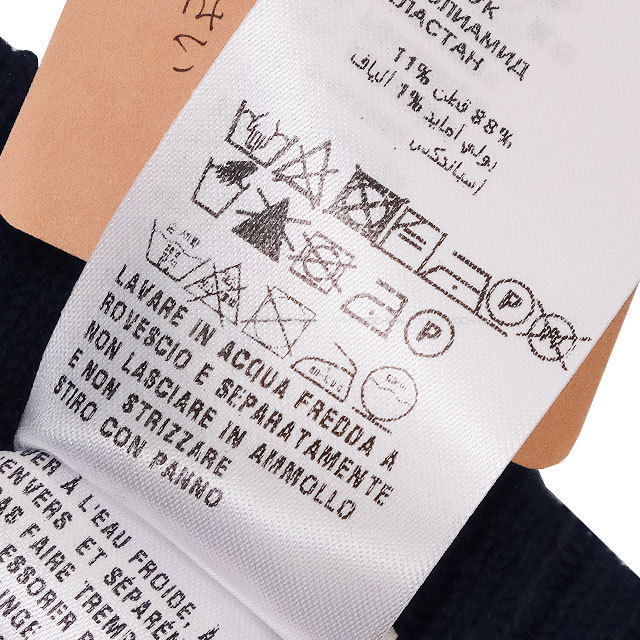 ЛАСТАН
88% قطن 11%
بولي امايد 1% ألياف
P
P
LAVARE IN ACQUA FREDDA A
ROVESCIO E SEPARATAMENTE
NON LASCIARE IN AMMOLLO
E NON STRIZZARE
STIRO CON PANNO
ER À L'EAU FROIDE, À
ENVERS ET SÉPARÉ
AS FAIRE TREMP
ESSORER
NGE.